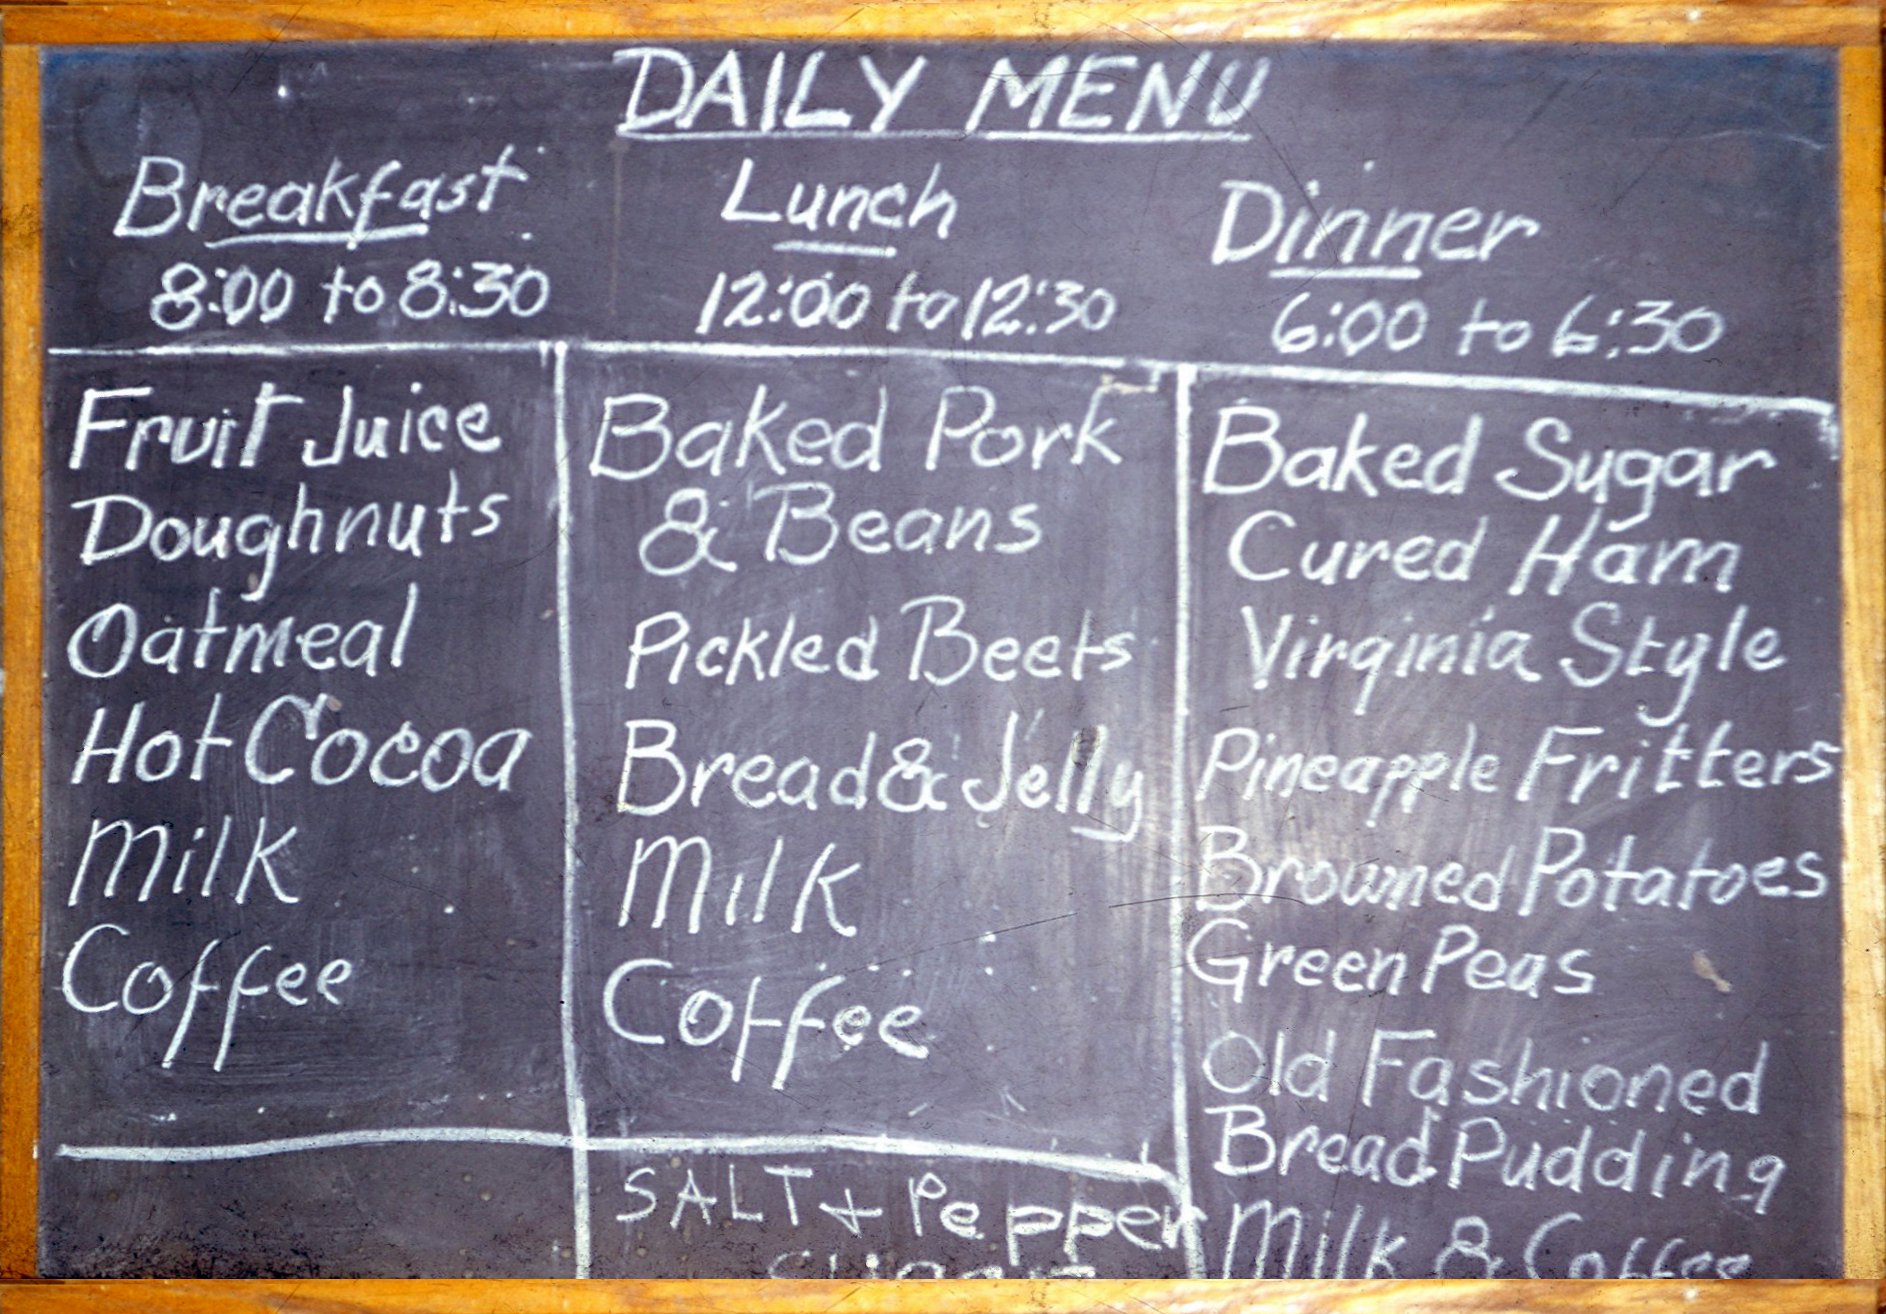 DAILY MENU
Breakfast
8:00 to 8:30
Fruit Juice
Doughnuts
Oatmeal
Hot Cocoa
Milk
Coffee
Lunch
12:00 to 12:30
Baked Pork
& Beans
Pickled Beets
Bread & Jelly
Milk
Coffee
SALT + Pepper
Dinner
6:00 to 6:30
Baked Sugar
Cured Ham
Virginia Style
Pineapple Fritters
Browned Potatoes
Green Peas
Old Fashioned
Bread Pudding
Milk & Coffee